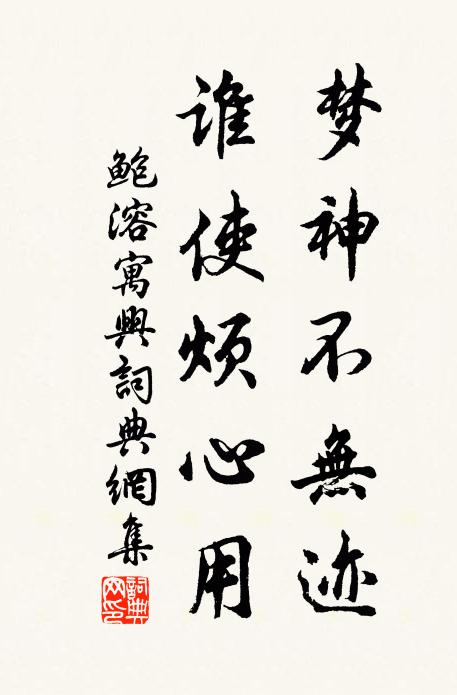 梦神不無迹
谁使烦心用
鲍溶寓興詞典網集
詞典网印